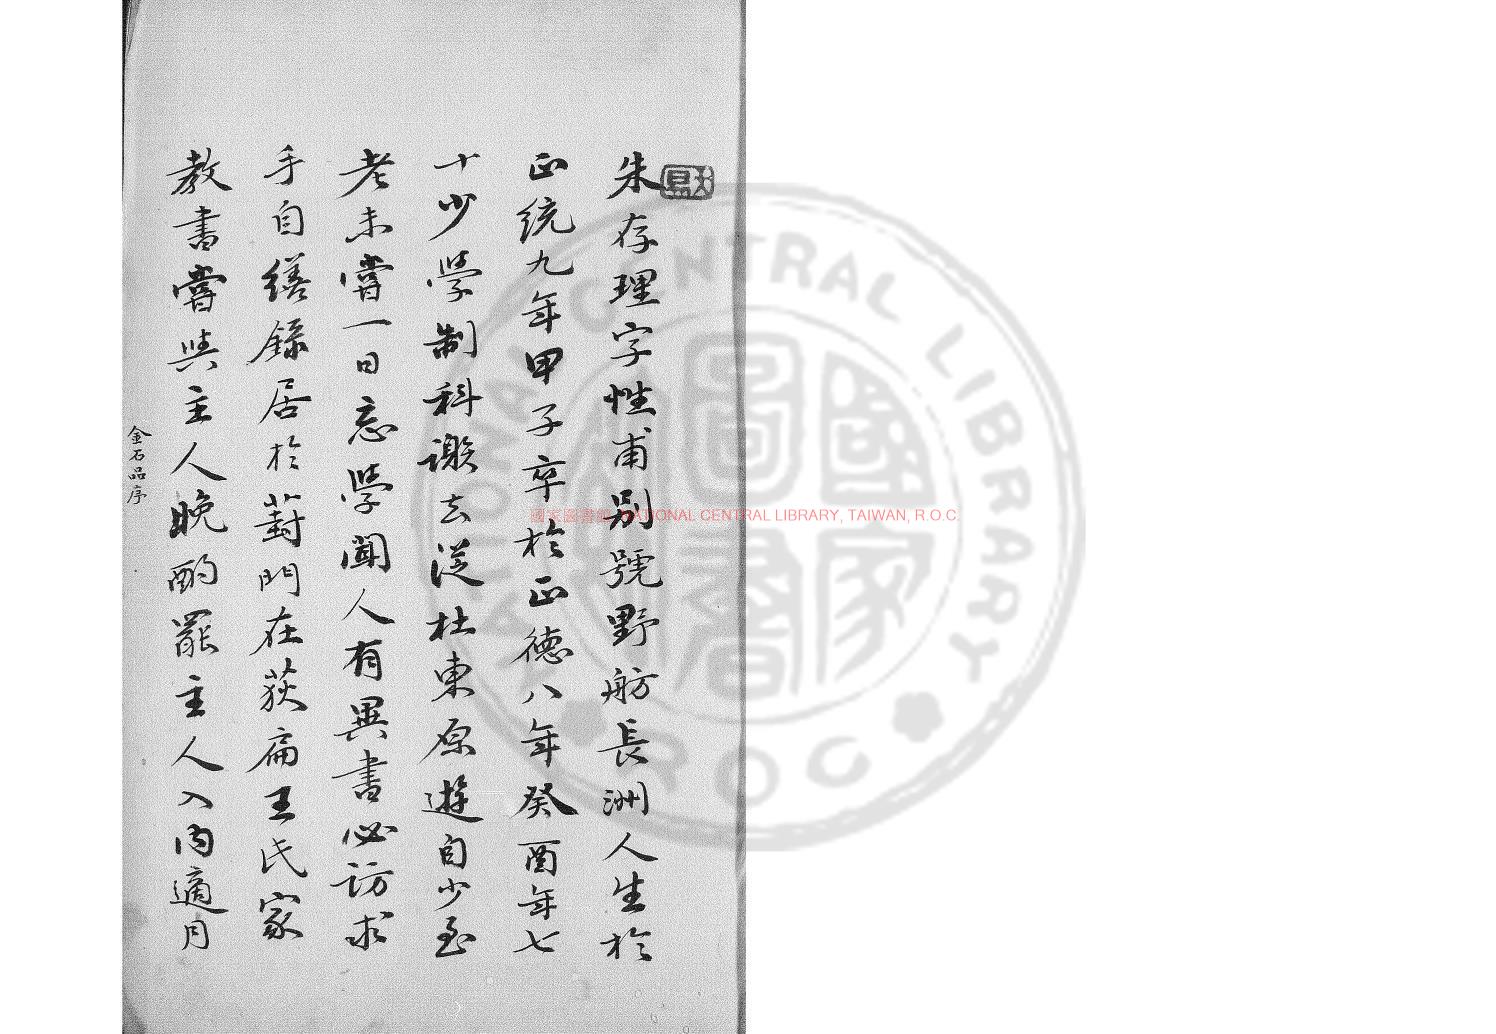 朱存理字性甫别號野舫長洲人生於
正統九年甲子卒於正德八年癸酉年七
十少學制科謝去從杜東原遊自少至
老未嘗一日忘學聞人有異書必訪求
手自繕錄居於葑門在荻扁王氏家
教書嘗與主人晚酌罷主人入內適月
金石品序
國家圖書館 NATIONAL CENTRAL LIBRARY, TAIWAN, R.O.C.
NATIONAL CENTRAL LIBRARY
ROC
國家圖書館